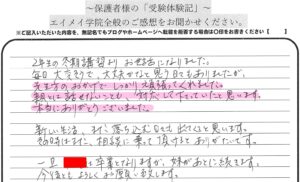 ～保護者様の「受験体験記」～
エイメイ学院全般のご感想をお聞かせください。
※ご記入いただいた内容を、無記名でもブログやホームページへ転載を拒否する場合は〇印をお書きください（　　）
2年生の冬期講習よりお世話になりました。
毎日大変そうで、大丈夫かなと思う日もありましたが、
先生方のおかげでしっかり頑張ってくれました。
親には話せないことも、対応して下さっていたと思います。
本当にありがとうございました。
新しい生活、また落ち込む日も出てくると思います。
その時はまた、相談に乗って頂けるとありがたいです。
一旦　は卒業となりますが、妹があとに続きます。
今後ともよろしくお願い致します。